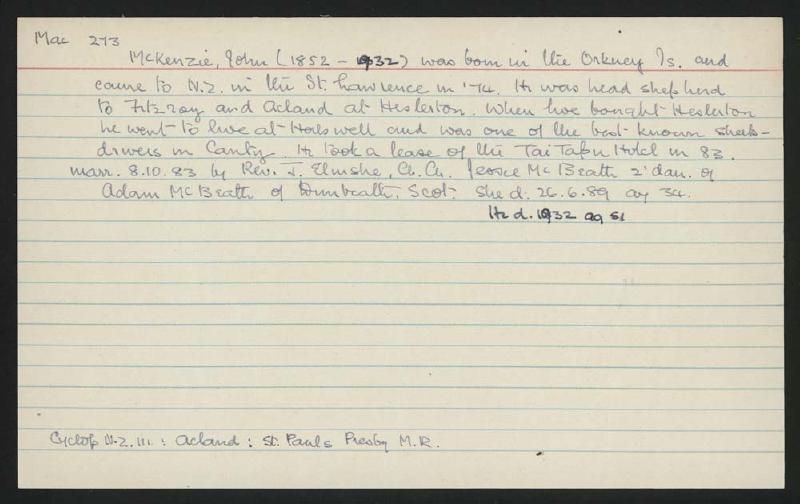 Mac 273
McKenzie, John (1852 - 1932) was born in the Orkney Is. and
came to N.Z. in the St. Lawrence in '74. He was head shepherd
to Fitzroy and Acland at Heslerton. When bought Heslerton
he went to live at Halswell and was one of the best known sheep-
drivers in Canty. He took a lease of the Tai Tapu Hotel in 83.
marr. 8.10.83 by Rev. J. Elmslie, Ch. Ch. Jessie McBeath 2' dau. of
Adam McBeath of Dunbeath, Scot. She d. 26.6.89 ag 34.
He d. 1932 ag 81
Cyclop N.Z. III. : Acland : St. Pauls Presby M.R.